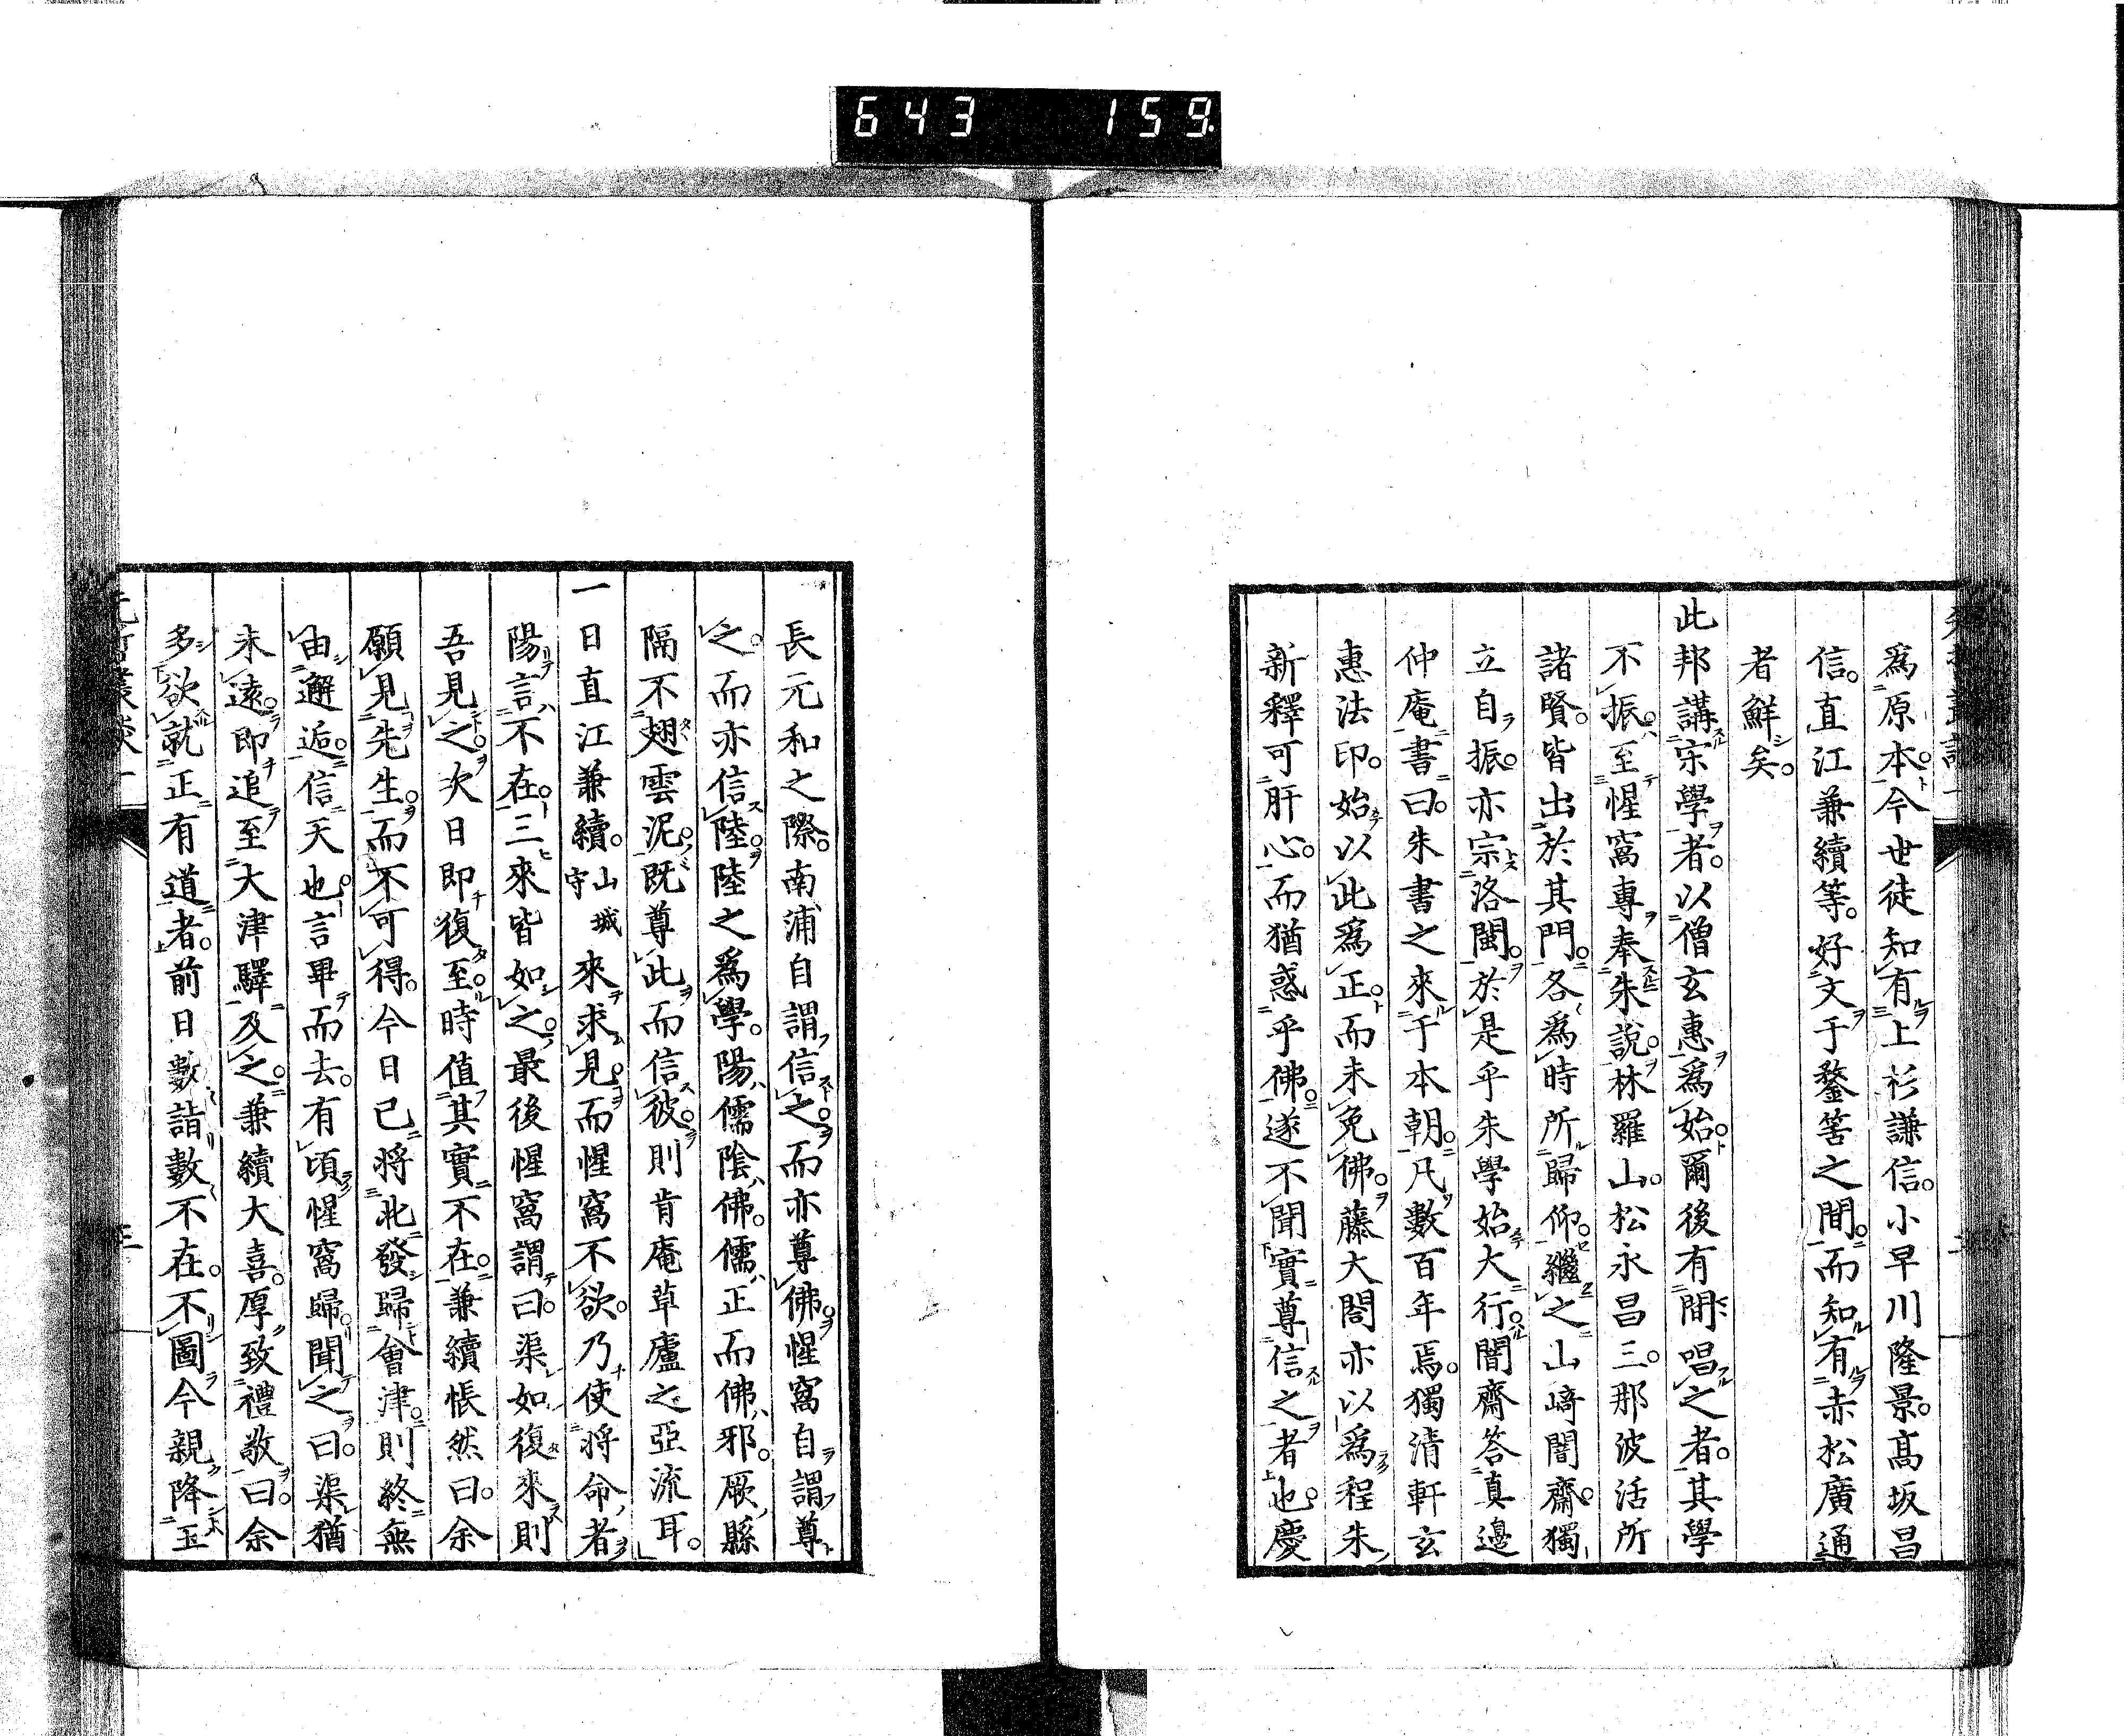 643 159
為原本今世徒知有上杉謙信小早川隆景高坂昌
信直江兼續等好文于鍪笘之間而知有赤松廣通
者鮮矣
此邦講宋學者以僧玄惠為始爾後有間唱之者其學
不振至惺窩專奉朱說林羅山松永昌三那波活所
諸賢皆出於其門各為時所歸仰繼之山崎闇齋獨
立自振亦宗洛閩於是乎朱學始大行闇齋答真邊
仲庵書曰朱書之來于本朝凡數百年焉獨清軒玄
惠法印始以此為正而未免佛藤大閤亦以為程朱
新釋可肝心而猶惑乎佛遂不聞實尊信之者也慶
長元和之際南浦自謂信之而亦尊佛惺窩自謂尊
之而亦信陸陸之為學陽儒陰佛儒正而佛邪厥縣
隔不翅雲泥既尊此而信彼則肯庵草廬之亞流耳
一日直江兼續山城守來求見而惺窩不欲乃使將命者
陽言不在三來皆如之最後惺窩謂曰渠如復來則
吾見之次日即復至時值其實不在兼續悵然曰余
願見先生而不可得今日已將北發歸會津則終無
由邂逅信天也言畢而去有頃惺窩歸聞之曰渠猶
未遠即追至大津驛及之兼續大喜厚致禮敬曰余
多欲就正有道者前日數詣數不在不圖今親降玉